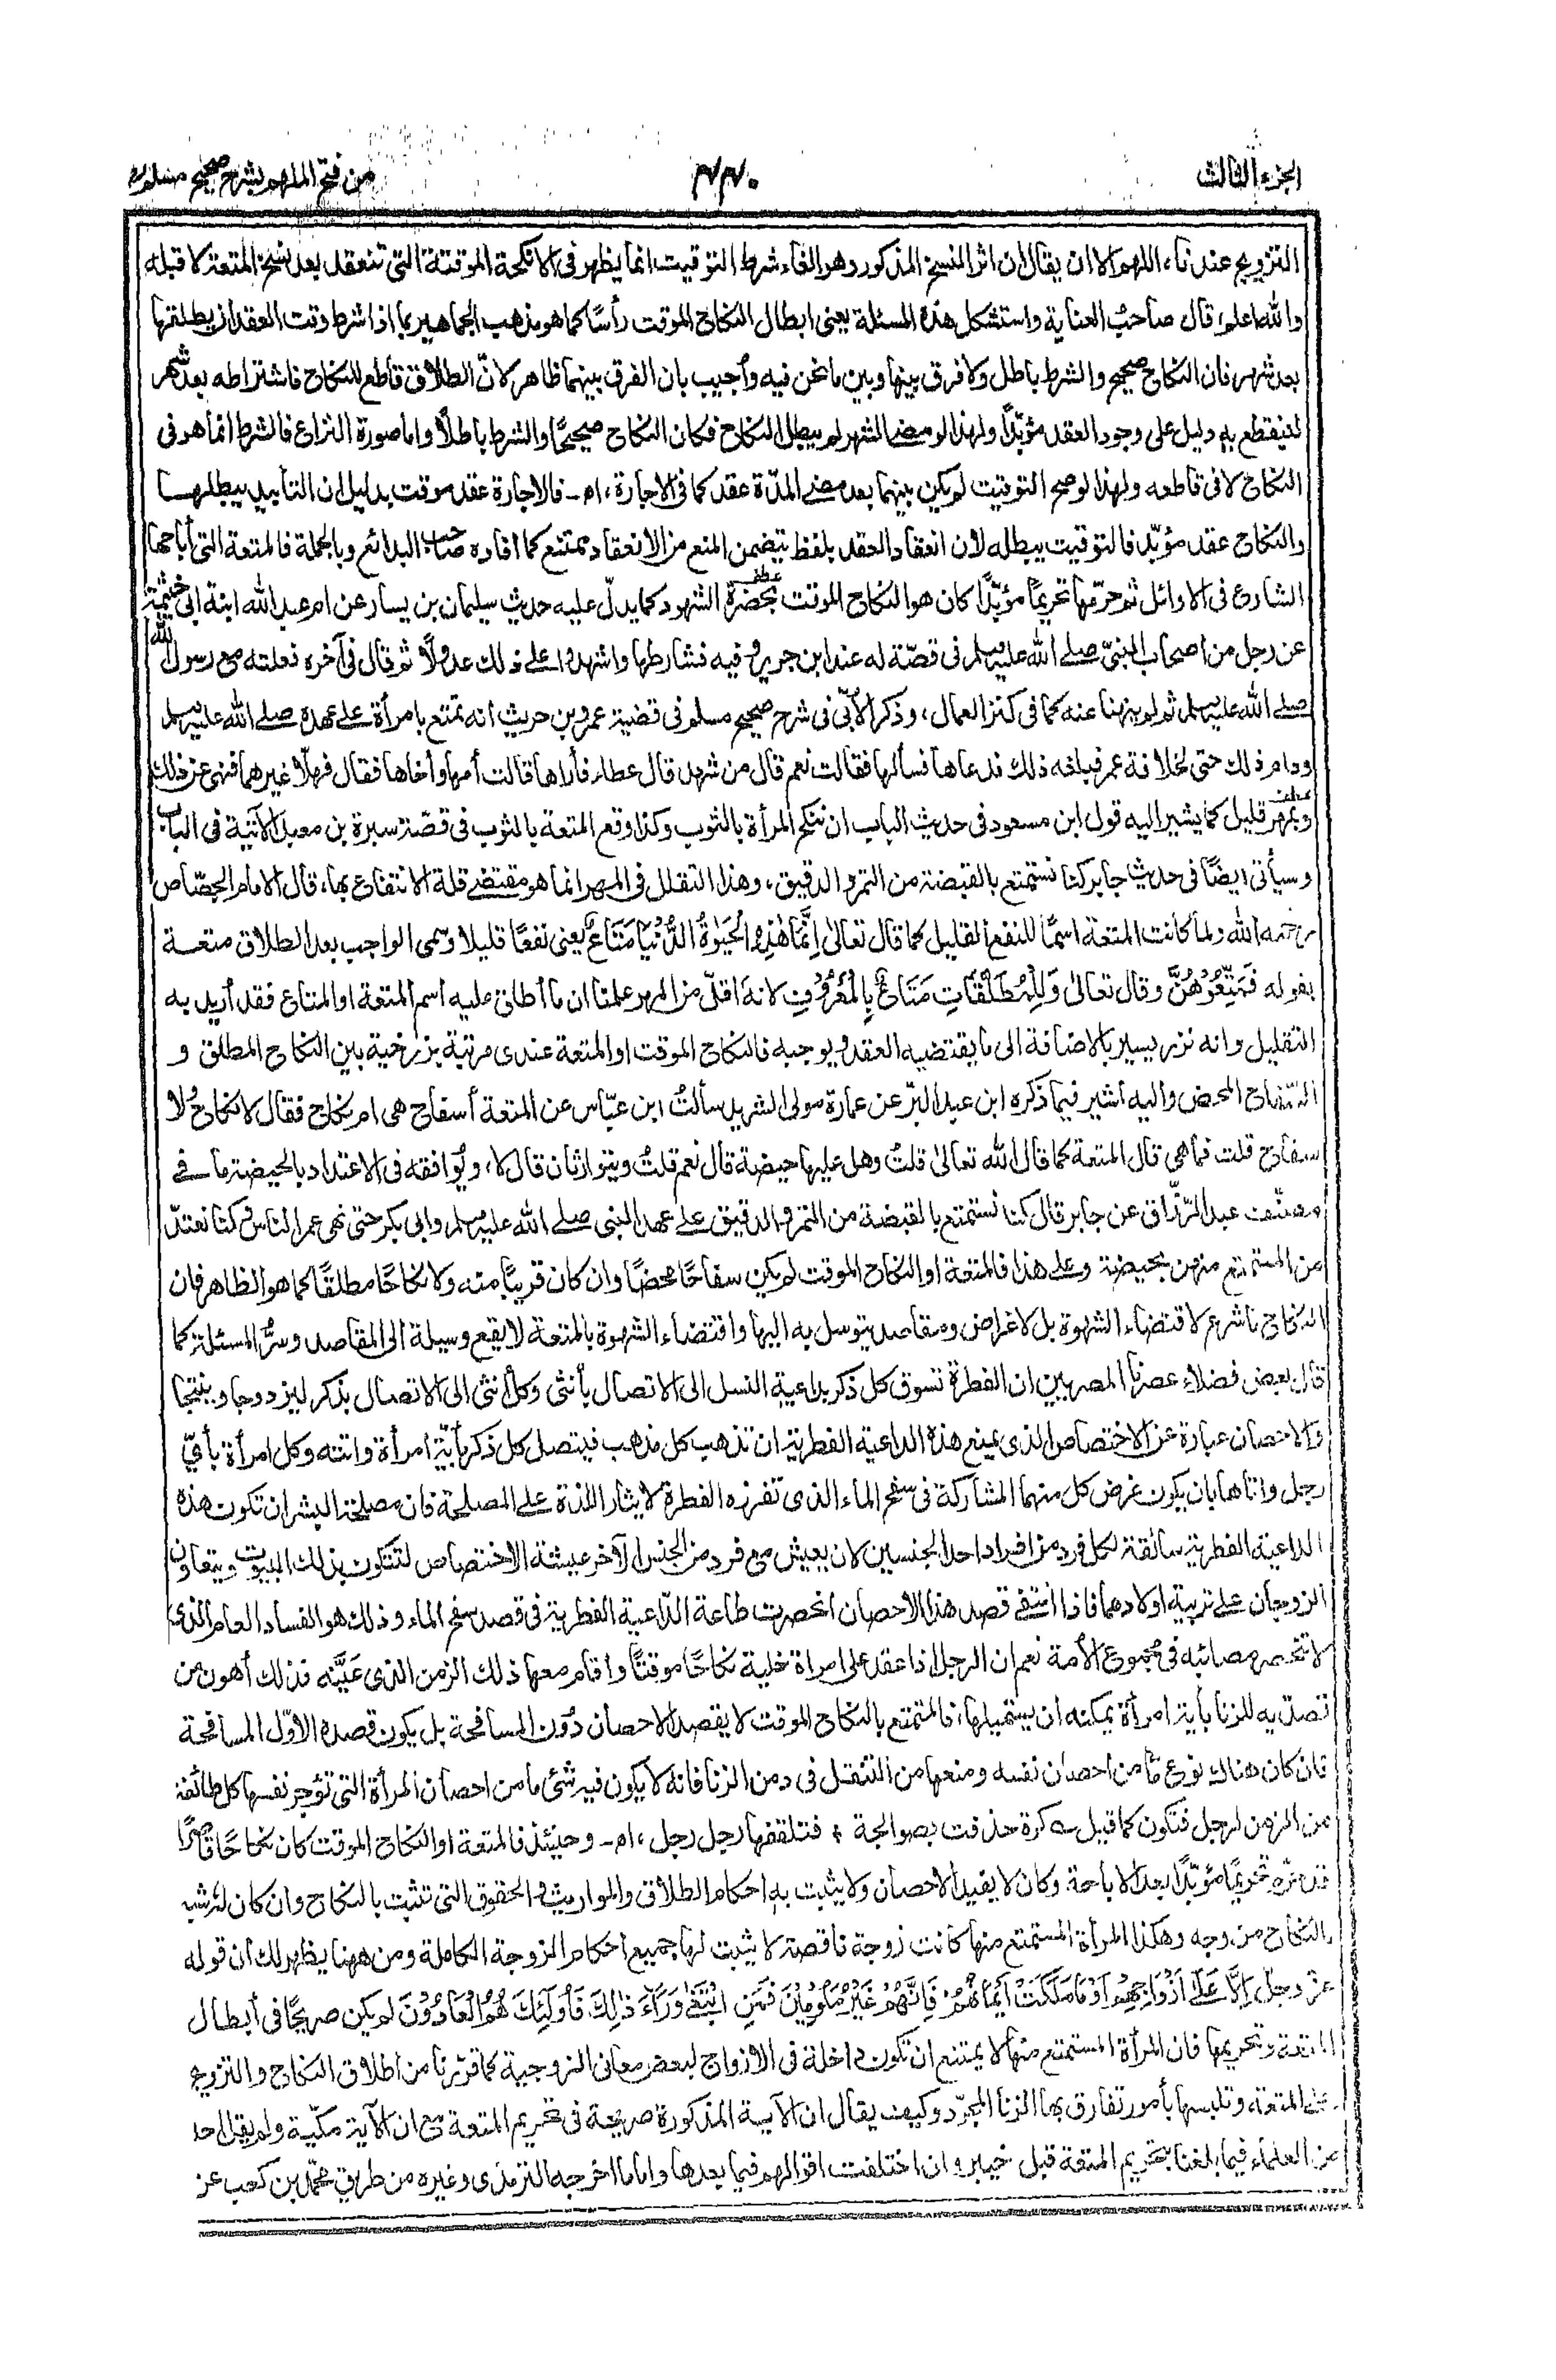 الجزء الثالث
٤٤٠
من فتح الملهم بشرح صحيح مسلم
التزويج عندنا، اللهم الا ان يقال ان اثر النسخ المذكور وهو الغاء شرط التوقيت انما يظهر فى الانكحة الموقتة التى تنعقد بعد نسخ المتعة لا قبله
والله اعلم، قال صاحب العناية واستشكل هذه المسئلة يعنى ابطال النكاح الموقت رأسًا كما هو مذهب الجماهير بما اذا شرط وقت العقد ان يطلقها
بعد شهر فان النكاح صحيح والشرط باطل ولا فرق بينها وبين ما نحن فيه وأجيب بان الفرق بينهما ظاهر لانّ الطلاق قاطع للنكاح فاشتراطه بعد شهر
لينقطع به دليل على وجود العقد مؤبّدًا ولهذا لو مضى الشهر لم يبطل النكاح فكان النكاح صحيحًا والشرط باطلًا واما صورة النزاع فالشرط انما هو فى
النكاح لا فى قاطعه ولهذا لو صح التوقيت لم يكن بينهما بعد مضى المدّة عقد كما فى الاجارة، اه‍ـ فالاجارة عقد موقت بدليل ان التأبيد يبطلها
والنكاح عقد مؤبّد فالتوقيت يبطله لان انعقاد العقد بلفظ يتضمن المنع من الانعقاد ممتنع كما افاده صاحب البدائع وبالجملة فالمتعة التى أباحها
الشارع فى الاوائل ثم حرّمها تحريمًا مؤبّدًا كان هو النكاح الموقت بحضرة الشهود كما يدلّ عليه حديث سليمان بن يسار عن ام عبد الله ابنة ابى خثيمة
عن رجل من اصحاب النبيّ صلے الله عليه وسلم فى قصّة له عند ابن جرير وفيه فشارطها واشهدوا على ذلك عدولًا ثم قال فى آخره فعلته مع رسول الله
صلے الله عليه وسلم ثم لم ينهنا عنه كما فى كنز العمال، وذكر الأبّى فى شرح صحيح مسلم فى قضية عمرو بن حريث انه تمتع بامرأة على عهده صلے الله عليه وسلم
ودام ذلك حتى لخلافة عمر فبلغه ذلك فدعاها فسألها فقالت نعم قال من شهد قال عطاء فأراها قالت أمها وأخاها فقال فهلّا غيرهما فنهى عن ذلك
وبمهر قليل كما يشير اليه قول ابن مسعود فى حديث الباب ان ننكح المرأة بالثوب وكذا وقع المتعة بالثوب فى قصّة سبرة بن معبد الآتية فى الباب
وسيأتى ايضًا فى حديث جابر كنا نستمتع بالقبضة من التمر والدقيق، وهذا التقلل فى المهر انما هو مقتضى قلة الانتفاع بها، قال الامام الجصّاص
رحمه الله ولما كانت المتعة اسمًا للنفع القليل كما قال تعالى اِنَّمَا هٰذِهِ الْحَيٰوةُ الدُّنْيَا مَتَاعٌ يعنى نفعًا قليلا وسمى الواجب بعد الطلاق متعة
بقوله فَمَتِّعُوْهُنَّ وقال تعالى وَلِلْمُطَلَّقَاتِ مَتَاعٌ بِالْمَعْرُوْفِ لانه اقلّ من المهر علمنا ان ما أطلق عليه اسم المتعة او المتاع فقد أريد به
التقليل وانه نزر يسير بالاضافة الى ما يقتضيه العقد ويوجبه فالنكاح الموقت او المتعة عندى مرتبة برزخية بين النكاح المطلق و
السّفاح المحض واليه اشير فيما ذكره ابن عبد البرّ عن عمارة مولى الشريد سألتُ ابن عبّاس عن المتعة أسفاح هى ام نكاح فقال لا نكاحٌ لا
سفاح قلت فما هى قال المتعة كما قال الله تعالى قلتُ وهل عليها حيضة قال نعم قلتُ ويتوارثان قال لا، ويُوافقه فى الاعتداد بالحيضة ما فى
مصنّف عبد الرزّاق عن جابر قال كنا نستمتع بالقبضة من التمر والدقيق على عهد النبى صلے الله عليه وسلم وابى بكر حتى نهى عمر الناس وكنا نعتدّ
من المستمتع منهن بحيضة وعلى هذا فالمتعة او النكاح الموقت لم يكن سفاحًا محضًا وان كان قريبًا منه ولا نكاحًا مطلقًا كما هو الظاهر فان
النكاح ما شرع لاقتضاء الشهوة بل لاغراض ومقاصد يتوسل به اليها واقتضاء الشهوة بالمتعة لا يقع وسيلة الى المقاصد وسرُّ المسئلة كما
قال بعض فضلاء عصرنا المصريين ان الفطرة تسوق كل ذكر بداعية النسل الى الاتصال بأنثى وكل أنثى الى الاتصال بذكر ليزدوجا وينتجا
والاحصان عبارة عن الاختصاص الذى يمنع هذه الداعية الفطرية ان تذهب كل مذهب فيتصل كل ذكر بأيّة امرأة واتته وكل امرأة بأيّ
رجل واتاها بان يكون غرض كل منهما المشاركة فى سفح الماء الذى تفرزه الفطرة لايثار اللذة على المصلحة فان مصلحة البشر ان تكون هذه
الداعية الفطرية سائقة لكل فرد من افراد احد الجنسين لان يعيش مع فرد من الجنس الآخر عيشة الاختصاص لتتكون بذلك البيوت ويتعاون
الزوجان على تربية اولادهما فاذا انتفى قصد هذا الاحصان انحصرت طاعة الدّاعية الفطرية فى قصد سفح الماء وذلك هو الفساد العام الذى
لا تنحصر مصائبه فى مجموع الأمة نعم ان الرجل اذا عقد على امراة خلية نكاحًا موقتًا واقام معها ذلك الزمن الذى عَيَّنه فذلك أهون من
تصدّيه للزنا بأية امرأة يمكنه ان يستميلها، فالمتمتع بالنكاح الموقت لا يقصد الاحصان دُون المسافحة بل يكون قصده الاوّل المسافحة
فان كان هناك نوع مّا من احصان نفسه ومنعها من التنقل فى دمن الزنا فانه لا يكون فيه شئ ما من احصان المرأة التى تؤجر نفسها كل طائفة
من الزمن لرجل فتكون كما قيل ؎ كرة حذفت بصوالجة ؛ فتلقفها رجل رجل، اه‍ـ وحينئذ فالمتعة او النكاح الموقت كان نكاحًا قاصرًا
تحريمًا مؤبّدًا بعد الاباحة وكان لا يفيد الاحصان ولا يثبت به احكام الطلاق والمواريث والحقوق التى تثبت بالنكاح وان كان له شبه
بالنكاح من وجه وهكذا المرأة المستمتع منها كانت زوجة ناقصة لا يثبت لها جميع احكام الزوجة الكاملة ومن ههنا يظهر لك ان قوله
عز وجلّ اِلَّا عَلٰى اَزْوَاجِهِمْ اَوْ مَا مَلَكَتْ اَيْمَانُهُمْ فَاِنَّهُمْ غَيْرُ مَلُوْمِيْنَ فَمَنِ ابْتَغٰى وَرَآءَ ذٰلِكَ فَأُولٰئِكَ هُمُ الْعَادُوْنَ لم يكن صريحًا فى أبطال
المتعة وتحريمها فان المرأة المستمتع منها لا يمتنع ان تكون داخلة فى الازواج لبعض معانى الزوجية كما قرّرنا من اطلاق النكاح والتزوج
على المتعة، وتلبسها بأمور تفارق بها الزنا المجرّد وكيف يقال ان الآية المذكورة صريحة فى تحريم المتعة مع ان الآية مكّية ولم يقل احد
من العلماء فيما بلغنا بتحريم المتعة قبل خيبر وان اختلفت اقوالهم فيما بعدها واما ما اخرجه الترمذى وغيره من طريق محمّد بن كعب عن